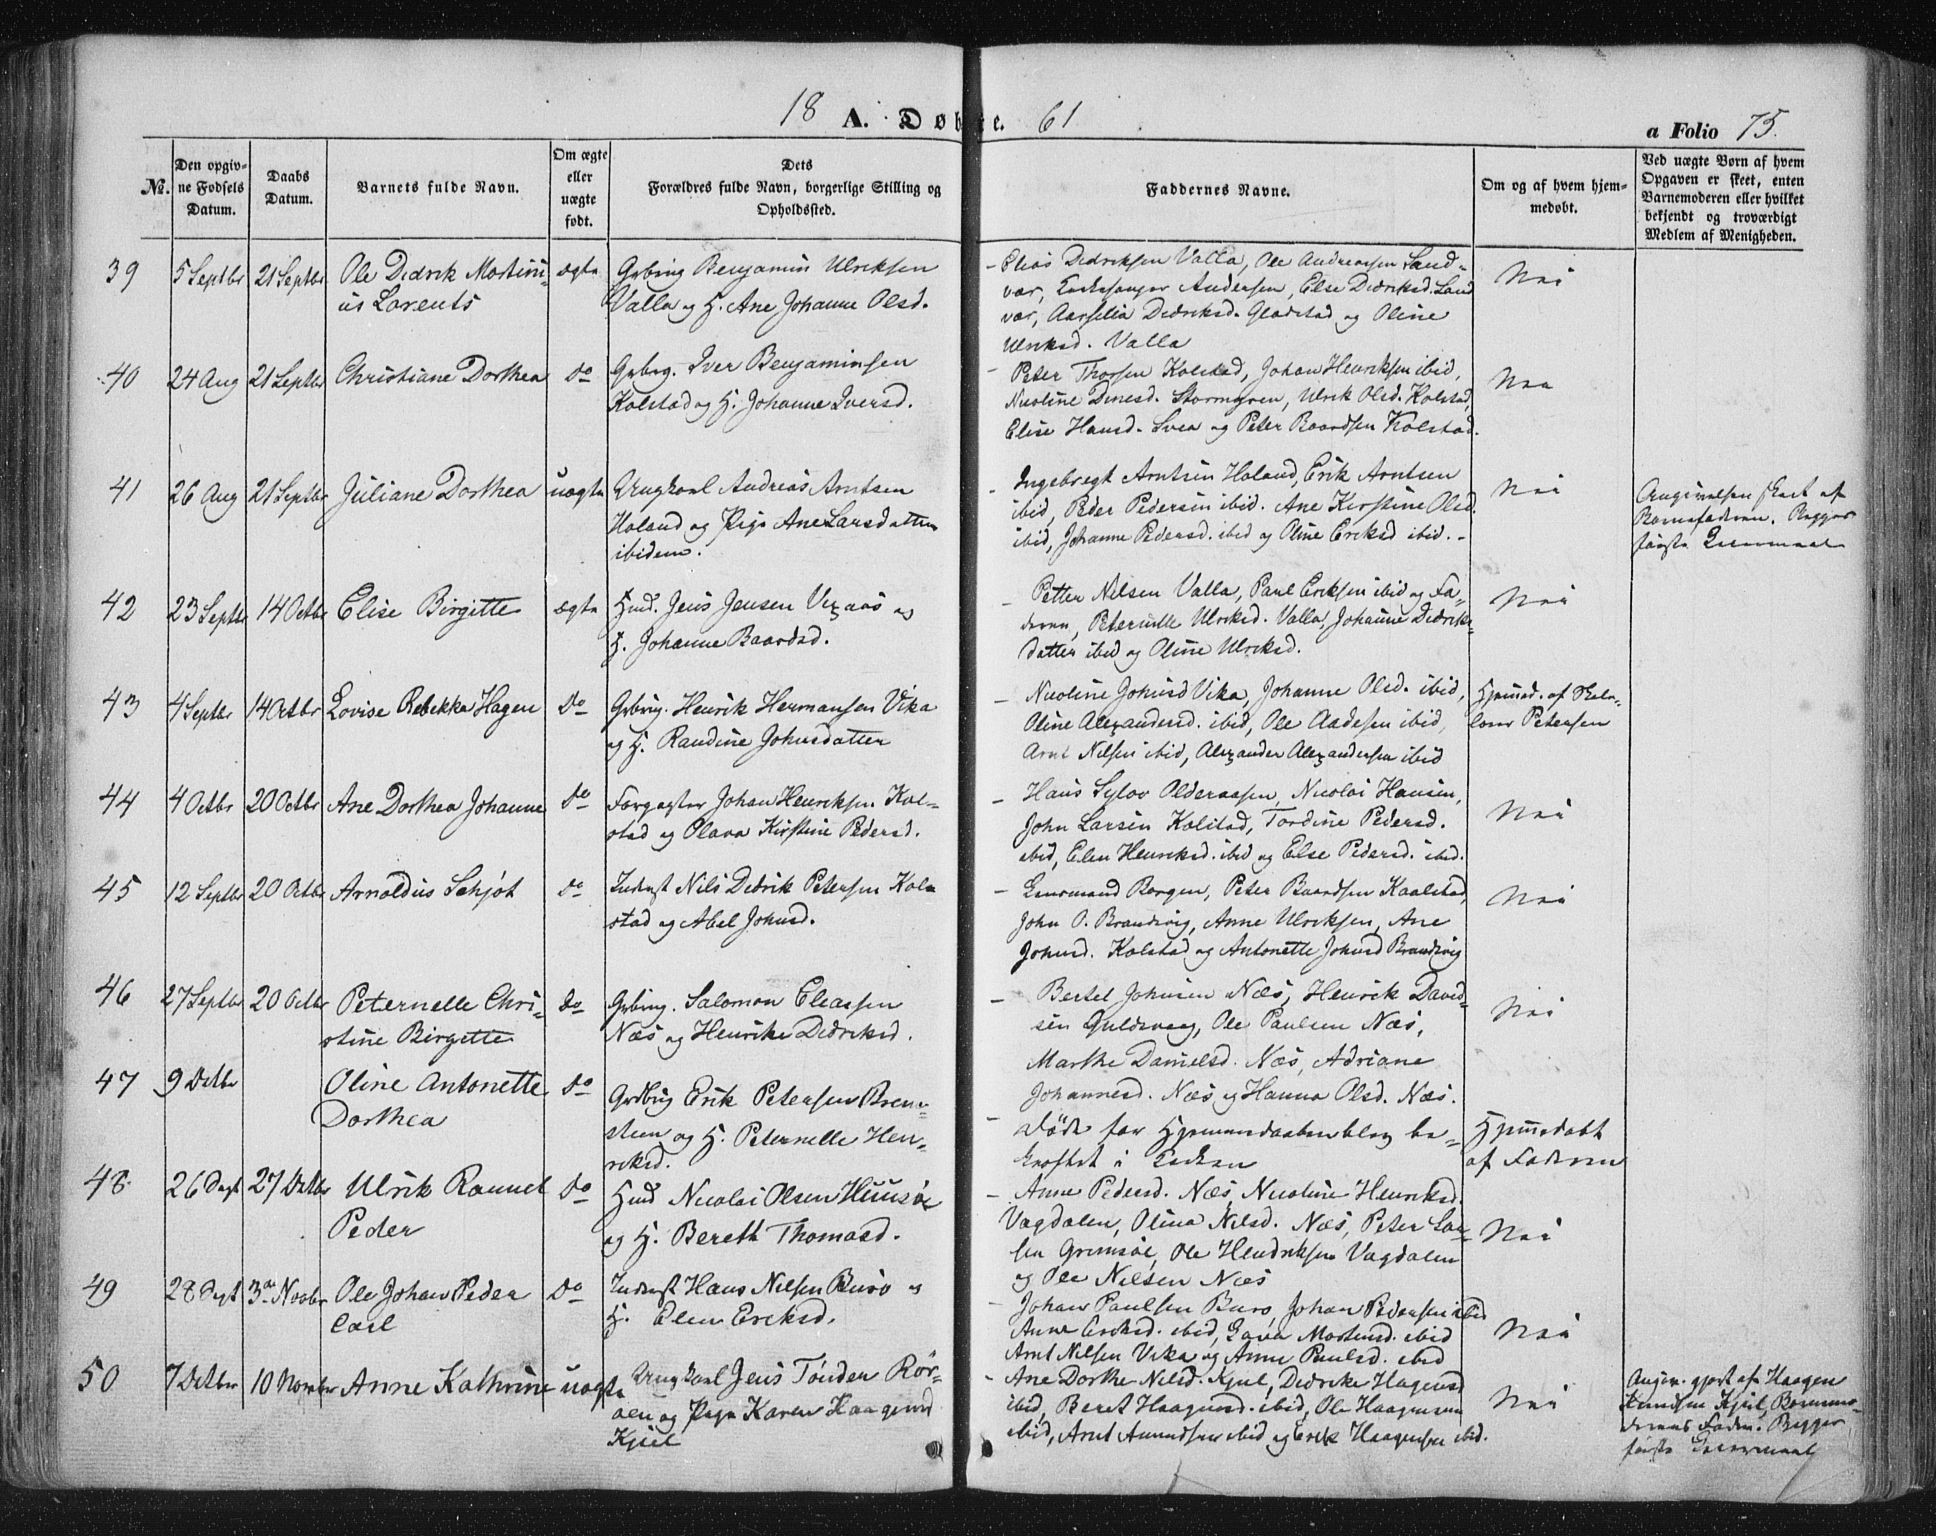 18 A. Døbte. 61
a Folio 75.
No.
Den opgivne Fødsels Datum.
Daabs Datum.
Barnets fulde Navn.
Om ægte eller uægte født.
Dets Forældres fulde Navn, borgerlige Stilling og Opholdssted.
Faddernes Navne.
Om og af hvem hjemmedøbt.
Ved uægte Børn af hvem Opgaven er skeet, enten Barnemoderen eller hvilket bekjendt og troværdigt Medlem af Menigheden.
39 5 Septbr 21 Septbr Ole Didrik Mortini-
us Lorents
ægte
Grbrug Benjamin Ulriksen
Valla og H. Ane Johanne Olsd.
- Elias Didriksen Valla, Ole Andreassen Sand-
vær, Kirkesanger Andersen, Else Didriksd. Sand
vær, Didriksd. Gladstad og Oline
Ulriksd. Valla
Nei
40 24 Aug 21 Septbr Christiane Dorthea do
Grbrg. Iver Benjaminsen
Kolstad og H. Johanne Iversd.
- Peter Thorsen Kolstad, Johan Henriksen ibid,
Nicoline Dinesd. Ulrik Olsd. Kolstad,
Elise Hansd. Svea og Peter Baardsen Kolstad.
Nei
41 26 Aug 21 Septbr Juliane Dorthea uægte
Ungkarl Andreas Arntsen
Holand og Pige Ane Larsdatter
ibidem.
- Ingebregt Arntsen Holand, Erik Arntsen
ibid, Peder Pedersen ibid. Ane Kirstine Olsd.
ibid, Johanne Pedersd. ibid og Oline Eriksd ibid. -
Nei
Angivelsen skeet af
Barnefaderen. Begges
første Leiermaal
42 23 Septbr 14 Octbr Elise Birgitte ægte
Hmd. Jens Jensen og
H. Johanne Baardsd.
- Petter Nilsen Valla, Paul Eriksen ibid og Fa-
deren, Peternille Ulriksd. Valla, Johanne Didriks-
datter ibid og Oline Ulriksd.
Nei
43 4 Septbr 14 Octbr Lovise Rebekka Hagen Do
Grbrug. Henrik Hermansen Vika
og H. Randine Johnsdatter
- Nicoline Johnsd Vika, Johanne Olsd. ibid,
Oline Alexandersd. ibid, Ole ibid,
Arnt Nilsen ibid, Alexander Alexandersen ibid
Hjemmed. af Skole-
lærer Petersen
44 4 Octbr 20 Octbr Ane Dorthea Johanne do
Forpagter Johan Henriksen Kol-
stad og Olava Kirstine Pedersd.
- Hans Sylov Olderaasen, Nicolai Hansen,
John Larsen Kolstad, Tordine Pedersd.
ibid, Elen Henriksd. ibid og Else Pedersd. ibid.
Nei
45 12 Septbr 20 Octbr Arnoldus Schjøt do
Inderst Nils Didrik Petersen Kol-
stad og Abel Johnsd.
- Lensmand Borgen, Peter Baardsen Kaalstad,
John O. Brandvig, Anne Ulriksen, Ane
Johnsd. Kolstad og Antonette Johnsd Brandvig
Nei
46 27 Septbr 20 Octbr Peternelle Chri-
stine Birgette
do
Grbrug. Salomon Eleasen
Næs og Henrike Didriksd.
- Bertel Johnsen Næs, Henrik David-
sen Guldsvaag, Ole Paulsen Næs,
Marthe Danielsd. Næs, Adriane
Johannesd. Næs og Hanna Olsd. Næs.
Nei
47 9 Octbr
Oline Antonette
Dorthea
do
Grdbrug Erik Petersen Bren-
steen og H. Peternelle Hen-
riksd.
- Døde før Hjemmedaaben blev be-
kræftet i Kirken
Hjemmedøbt
af Faderen
48. 26 Sept 27 Octbr Ulrik
Peder
Do
Hmd Nicolai Olsen
og H. Bereth Thomasd.
- Anne Pedersd. Næs, Nicoline Henriksd.
Vægdalen, Olina Nilsd. Næs, Peter Lar-
sen Grimsøe, Ole Hendriksen Vægdalen
og Ole Nilsen Næs
Nei
49 28 Sept 3die Novbr Ole Johan Peder
Carl
Do
Inderst Hans Nilsen Burø og
H. Elen Eriksd.
- Johan Paulsen Burø, Johan Pedersen ibid
Anne Eriksd. ibid, Mortensd. ibid
Arnt Nilsen Vika og Anne Paulsd. ibid
Nei
50 7 Octbr 10 Novembr Anne Kathrine uægte
Ungkarl Jens Tønder Rør-
øen og Pige Karen Haagensd
Kjul
- Ane Dorthe Nilsd. Kjul, Didrike Hagensd
ibid, Beret Haagensd. ibid, Ole Haagensen
ibid, Arnt Amundsen ibid og Erik Haagensen ibid.
Nei
Angiv. gjort af Haagen
Knudsen Kjul, Barnemo-
derens Fader. Begges
første Leiermaal